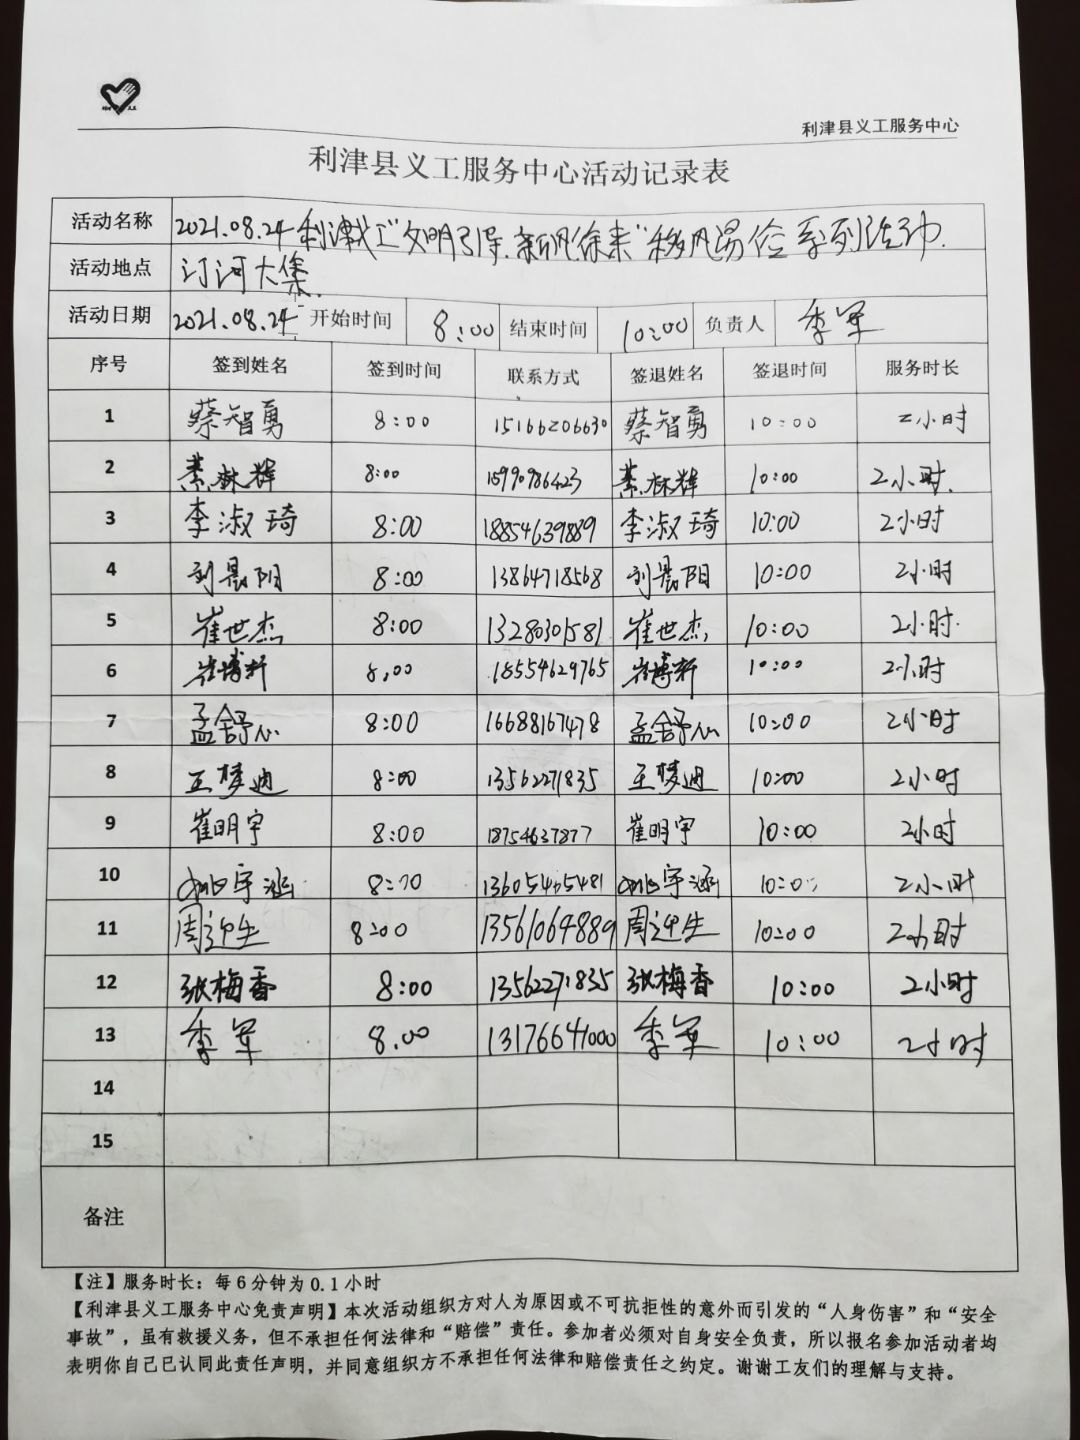 利津县义工服务中心
利津县义工服务中心活动记录表
活动名称 2021.08.24利津义工"文明引导.新风徐来"移风易俗系列活动.
活动地点 汀河大集.
活动日期 2021.08.24 开始时间 8:00 结束时间 10:00 负责人 季军
序号 签到姓名 签到时间 联系方式 签退姓名 签退时间 服务时长
1 蔡智勇 8:00 15166206630 蔡智勇 10:00 2小时
2 綦林辉 8:00 15990986423 綦林辉 10:00 2小时.
3 李淑琦 8:00 18854639889 李淑琦 10:00 2小时
4 刘晨阳 8:00 13864718568 刘晨阳 10:00 2小时
5 崔世杰 8:00 13280301581 崔世杰 10:00 2小时.
6 崔博轩 8.00 18554629765 崔博轩 10:00 2小时
7 孟舒心 8:00 16688167478 孟舒心 10:00 2小时
8 王梦迪 8:00 13562271835 王梦迪 10:00 2小时
9 崔明宇 8:00 18754637877 崔明宇 10:00 2小时
10 宇涵 8:00 宇涵 10:00 2小时
11 周迎生 8:00 13561064889 周迎生 10:00 2小时
12 张梅香 8:00 13562271835 张梅香 10:00 2小时
13 季军 8.00 13176641000 季军 10:00 2小时
14
15
备注
【注】服务时长：每6分钟为0.1小时
【利津县义工服务中心免责声明】本次活动组织方对人为原因或不可抗拒性的意外而引发的“人身伤害”和“安全
事故”，虽有救援义务，但不承担任何法律和“赔偿”责任。参加者必须对自身安全负责，所以报名参加活动者均
表明你自己已认同此责任声明，并同意组织方不承担任何法律和赔偿责任之约定。谢谢工友们的理解与支持。